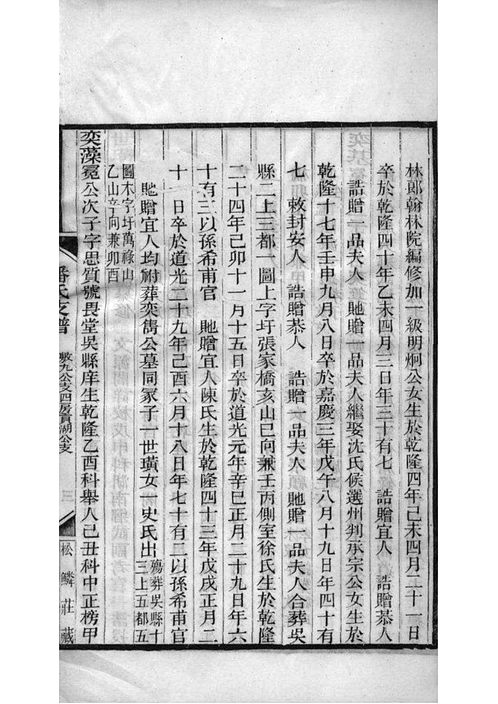 林郎翰林院編修加一級明炯公女生於乾隆四年己未四月二十一日
卒於乾隆四十年乙未四月三日年三十有七　誥贈宜人　誥贈恭人
誥贈一品夫人　貤贈一品夫人繼娶沈氏候選州判承宗公女生於
乾隆十七年壬申九月八日卒於嘉慶三年戊午八月十九日年四十有
七　敕封安人　誥贈恭人　誥贈一品夫人　貤贈一品夫人合葬吳
縣二上三都一圖上字圩張家橋亥山巳向兼壬丙側室徐氏生於乾隆
二十四年己卯十一月十五日卒於道光元年辛巳正月二十九日年六
十有三以孫希甫官　貤贈宜人陳氏生於乾隆四十三年戊戌正月二
十一日卒於道光二十九年己酉六月十八日年七十有二以孫希甫官
貤贈宜人均祔葬奕雋公墓同冢子一世璜女一史氏出殤葬吳縣十三上五都五
圖木字圩萬祿山
乙山辛向兼卯酉
奕藻冕公次子字思質號畏堂吳縣庠生乾隆乙酉科舉人己丑科中正榜甲
潘氏支譜
敷九公支四房貢湖公支
三
松鱗莊藏